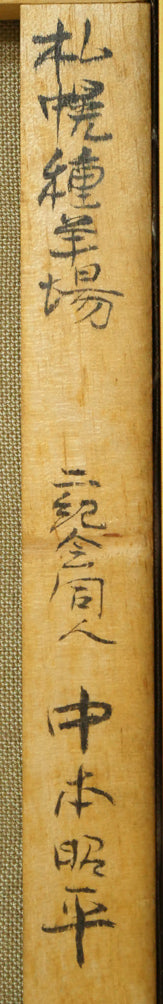 札幌種羊場 二紀会同人 中本昭平